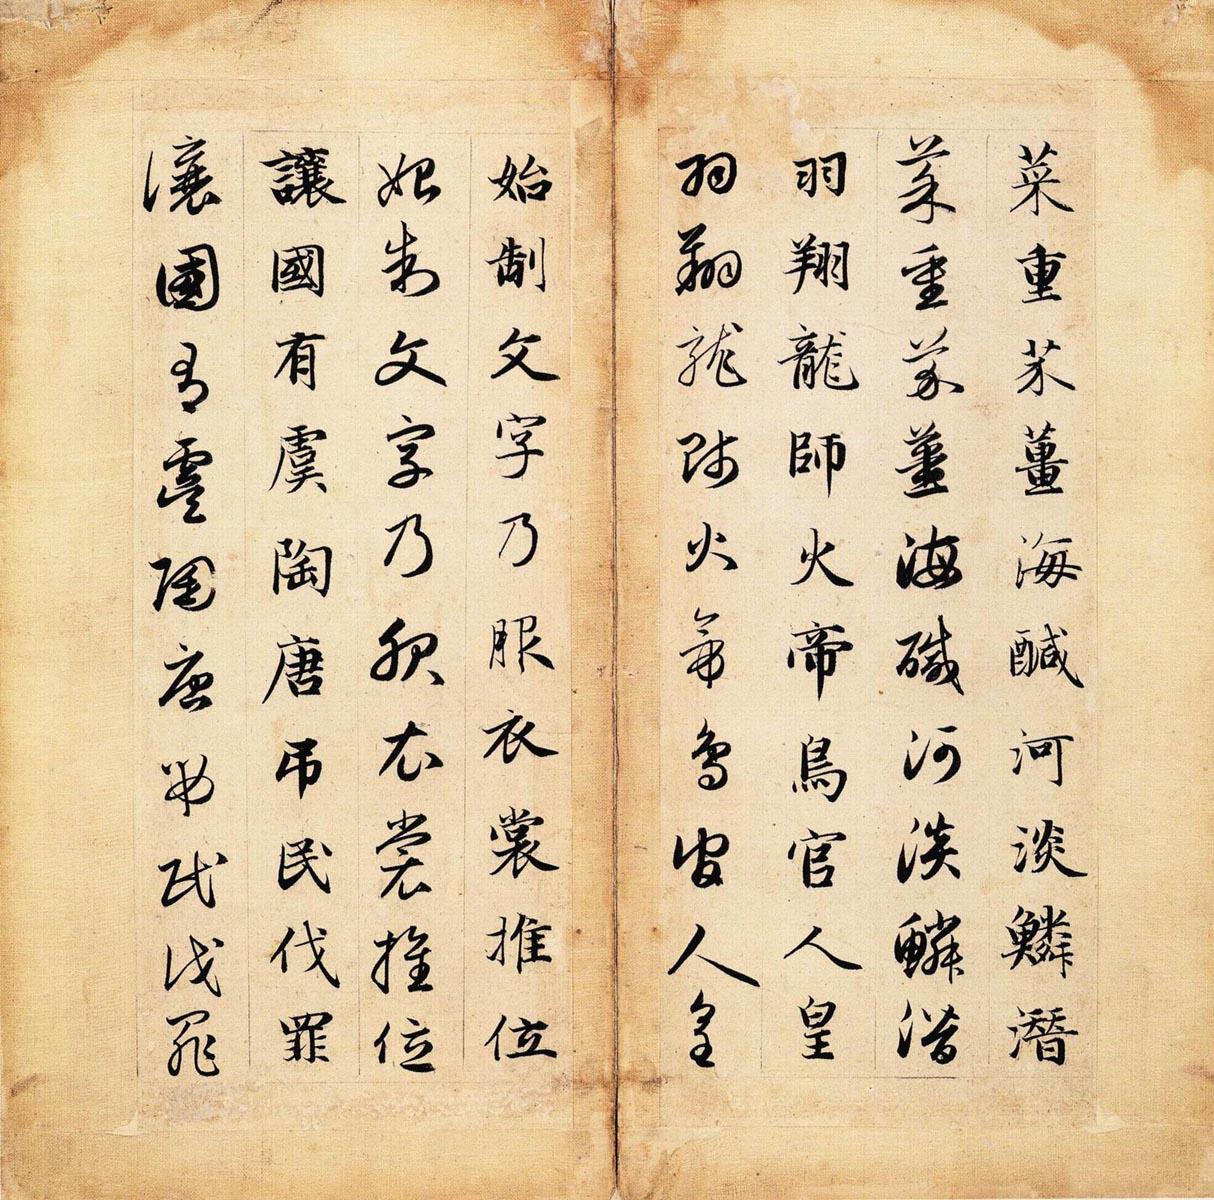 菜重芥薑海鹹河淡鱗潛
菜重芥薑海鹹河淡鱗潛
羽翔龍師火帝鳥官人皇
羽翔龍師火帝鳥官人皇
始制文字乃服衣裳推位
始制文字乃服衣裳推位
讓國有虞陶唐吊民伐罪
讓國有虞陶唐吊民伐罪